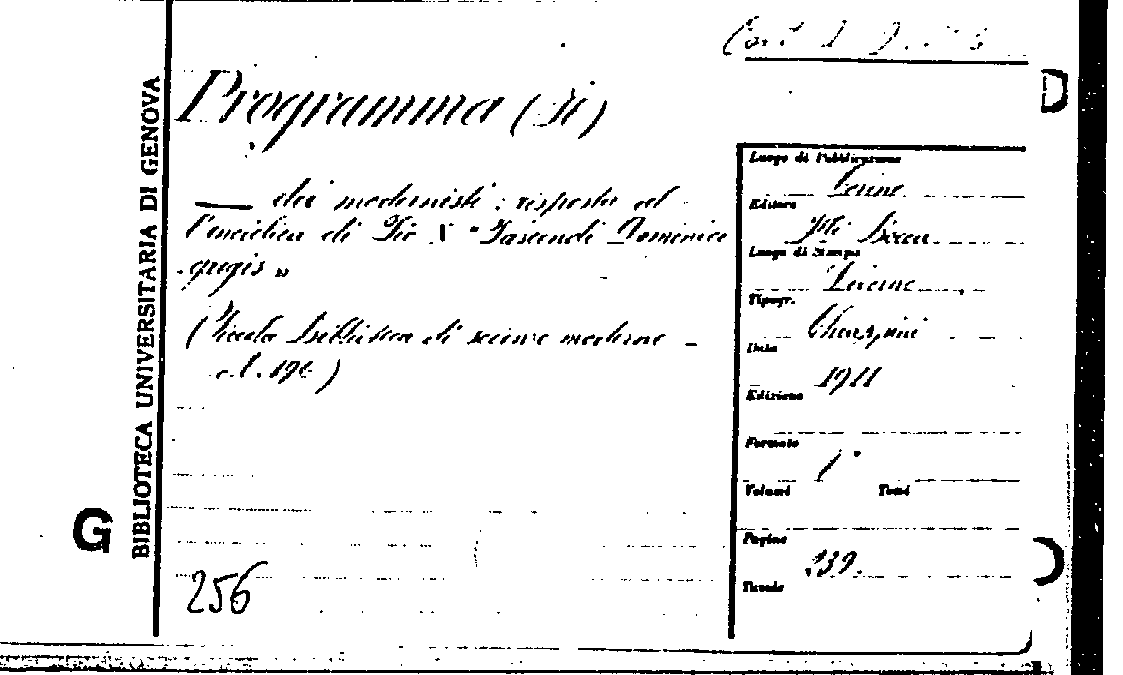 BIBLIOTECA UNIVERSITARIA DI GENOVA
G
Programma (Il)
— dei modernisti: risposta al
l'enciclica di Pio X "Pascendi Dominici
gregis"
(Piccola biblioteca di scienze moderne -
N. 190)
256
Luogo di Pubblicazione
Torino
Editore
F.lli Bocca
Luogo di Stampa
Torino
Tipogr.
Data
1911
Edizione
Formato
Volumi
Tomi
Pagine
239.
Tavole